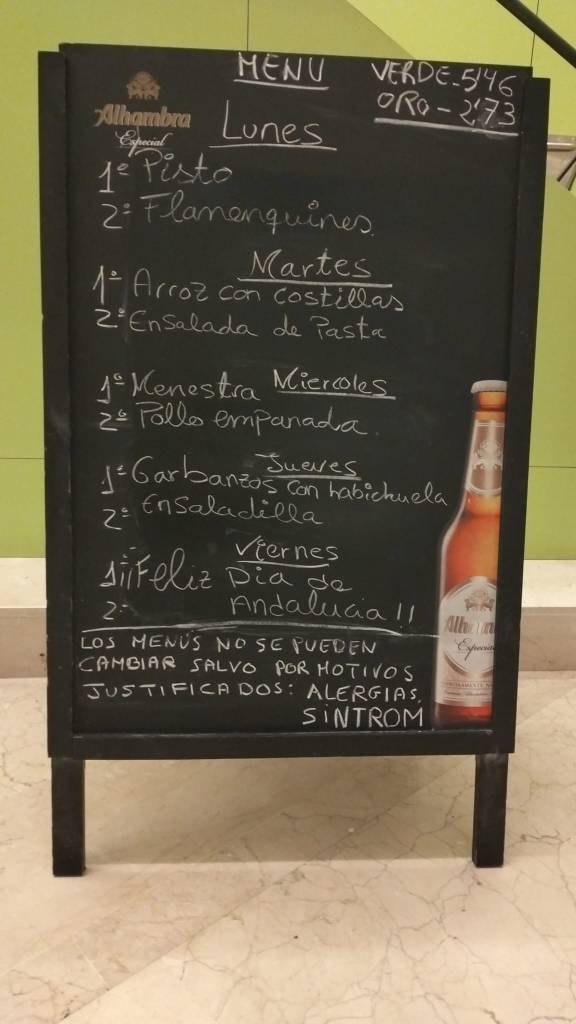 MENU
VERDE-5'46
ORO-2'73
Alhambra
Especial
Lunes
1º Pisto
2º Flamenquines.
Martes
1º Arroz con costillas
2º Ensalada de Pasta
Miercoles
1º Menestra
2º Pollo empanada.
Jueves
1º Garbanzos con habichuela
2º Ensaladilla
Viernes
1 ¡¡Feliz Dia de
2º Andalucia!!
LOS MENÚS NO SE PUEDEN
CAMBIAR SALVO POR MOTIVOS
JUSTIFICADOS: ALERGIAS,
SINTROM
Especial